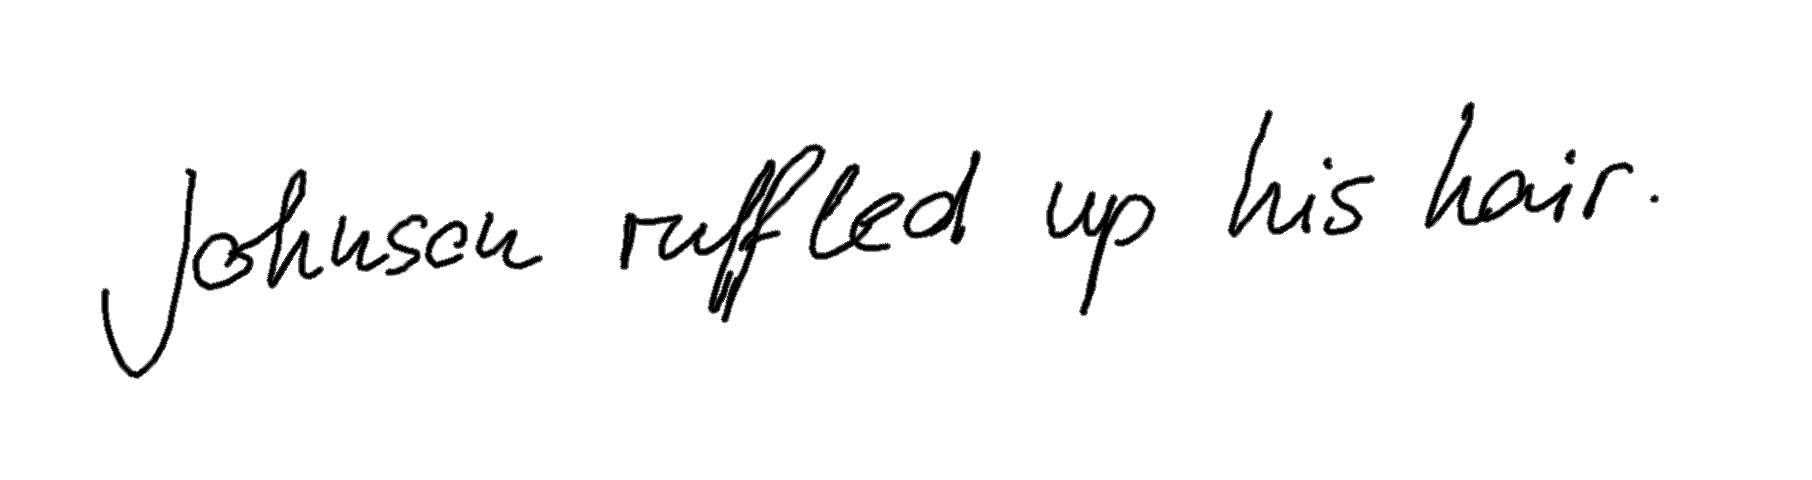 Johnson ruffled up his hair.